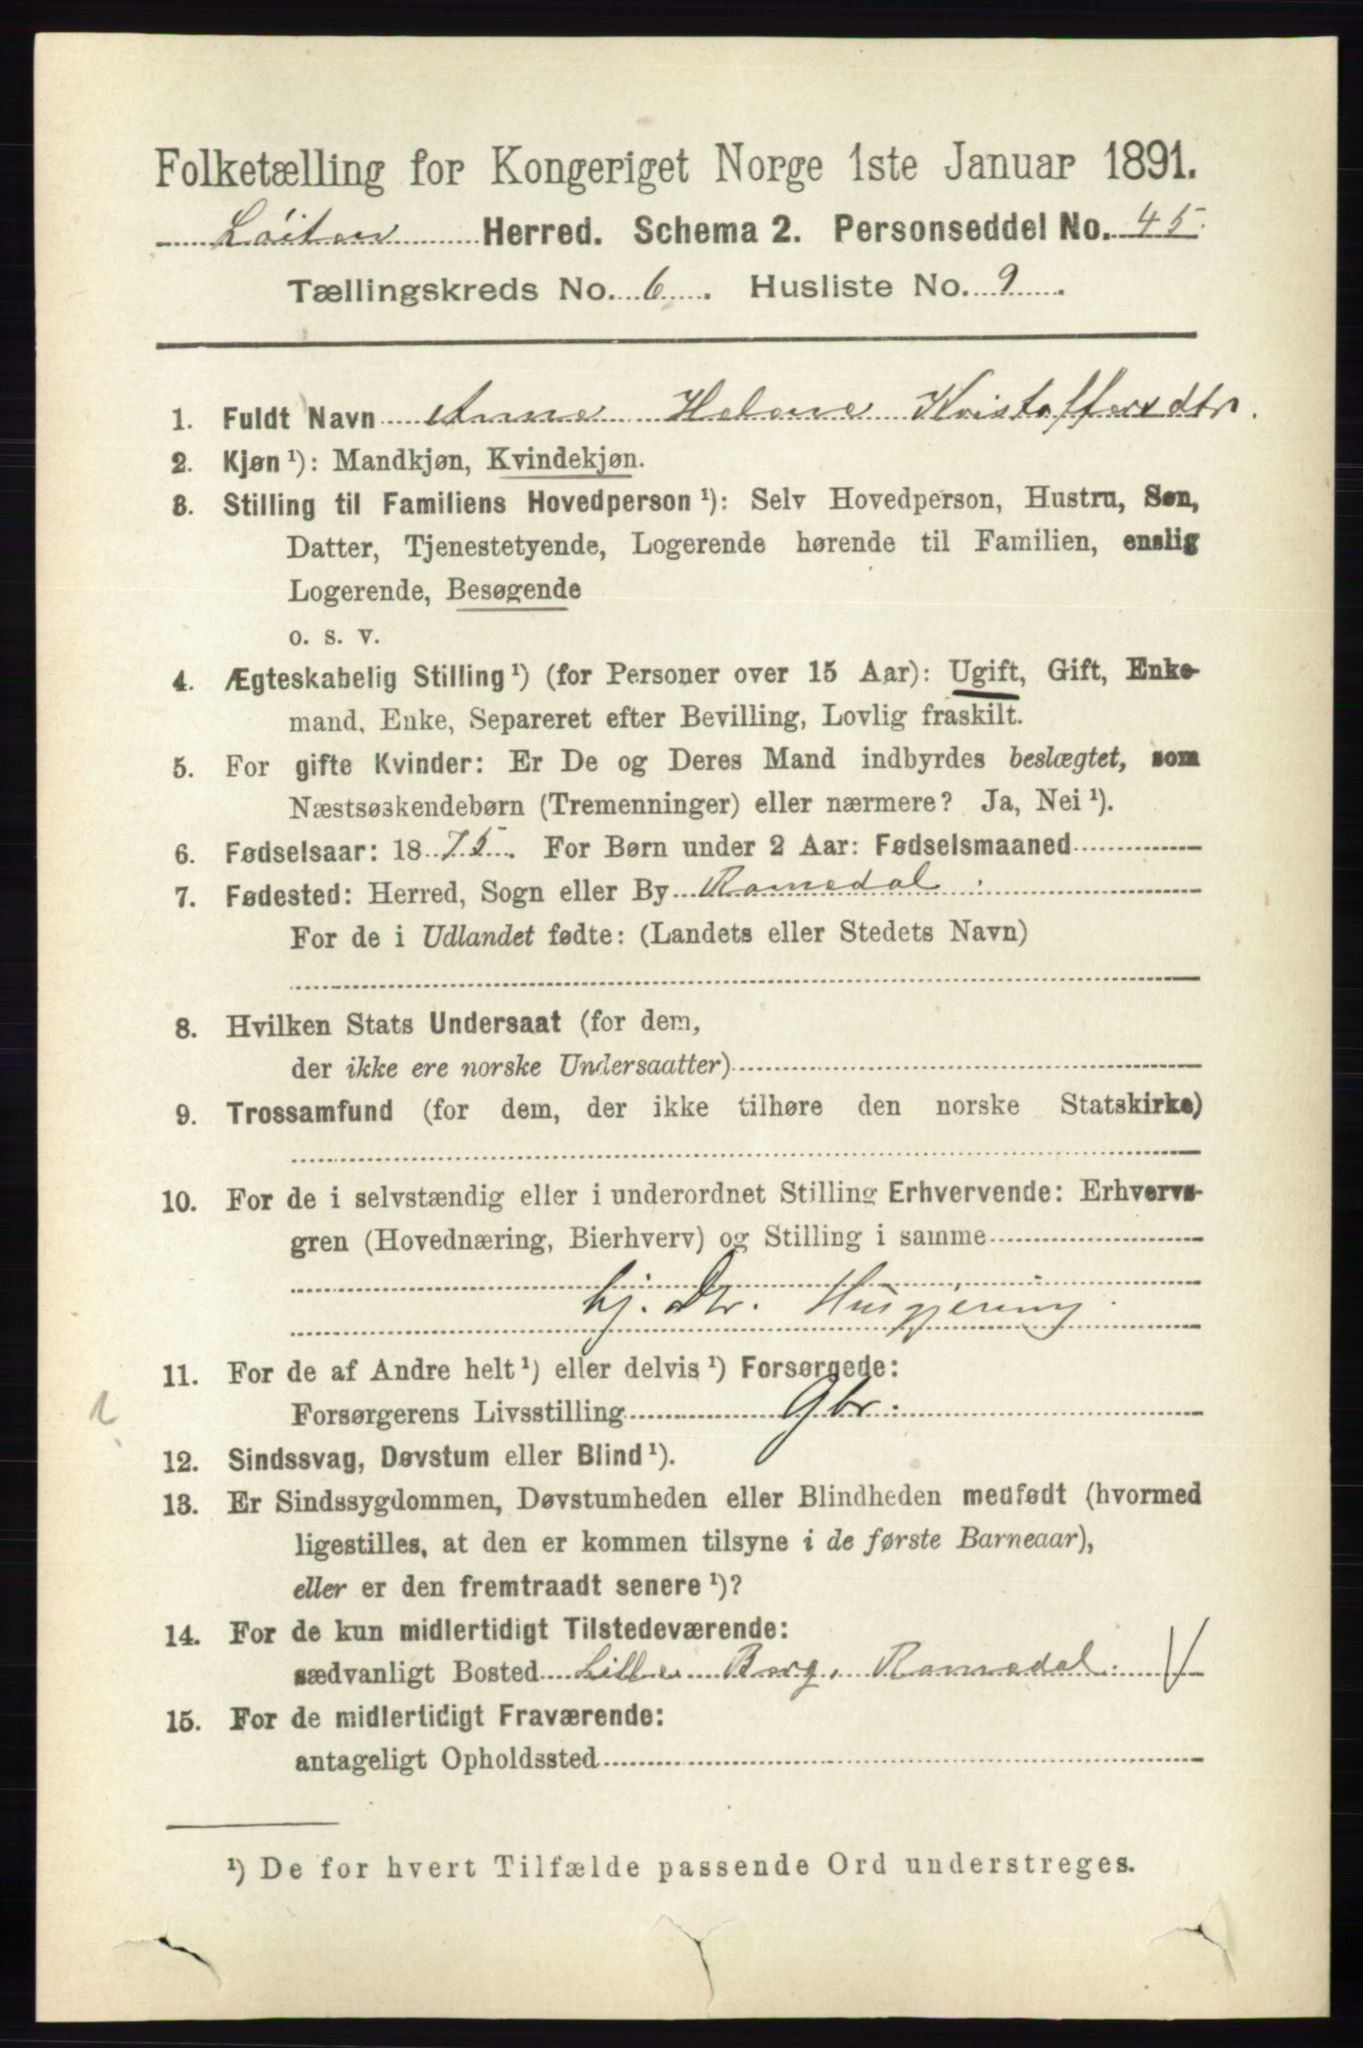 Folketælling for Kongeriget Norge 1ste Januar 1891.
Løiten Herred. Schema 2. Personseddel No. 45.
Tællingskreds No. 6. Husliste No. 9.
1. Fuldt Navn Anne Helene Kristoffersdtr.
2. Kjøn ¹): Mandkjøn, Kvindekjøn.
3. Stilling til Familiens Hovedperson ¹): Selv Hovedperson, Hustru, Søn,
Datter, Tjenestetyende, Logerende hørende til Familien, enslig
Logerende, Besøgende
o. s. v.
4. Ægteskabelig Stilling ¹) (for Personer over 15 Aar): Ugift, Gift, Enke-
mand, Enke, Separeret efter Bevilling, Lovlig fraskilt.
5. For gifte Kvinder: Er De og Deres Mand indbyrdes beslægtet, som
Næstsøskendebørn (Tremenninger) eller nærmere? Ja, Nei ¹).
6. Fødselsaar: 1875. For Børn under 2 Aar: Fødselsmaaned
7. Fødested: Herred, Sogn eller By Romedal
For de i Udlandet fødte: (Landets eller Stedets Navn)
8. Hvilken Stats Undersaat (for dem,
der ikke ere norske Undersaatter)
9. Trossamfund (for dem, der ikke tilhøre den norske Statskirke)
10. For de i selvstændig eller i underordnet Stilling Erhvervende: Erhvervs-
gren (Hovednæring, Bierhverv) og Stilling i samme
hj. Dtr. Husgjerning
11. For de af Andre helt ¹) eller delvis ¹) Forsørgede:
Forsørgerens Livsstilling Gbr.
12. Sindssvag, Døvstum eller Blind ¹).
13. Er Sindssygdommen, Døvstumheden eller Blindheden medfødt (hvormed
ligestilles, at den er kommen tilsyne i de første Barneaar),
eller er den fremtraadt senere ¹)?
14. For de kun midlertidigt Tilstedeværende:
sædvanligt Bosted Lille Berg, Romedal. V
15. For de midlertidigt Fraværende:
antageligt Opholdssted
¹) De for hvert Tilfælde passende Ord understreges.